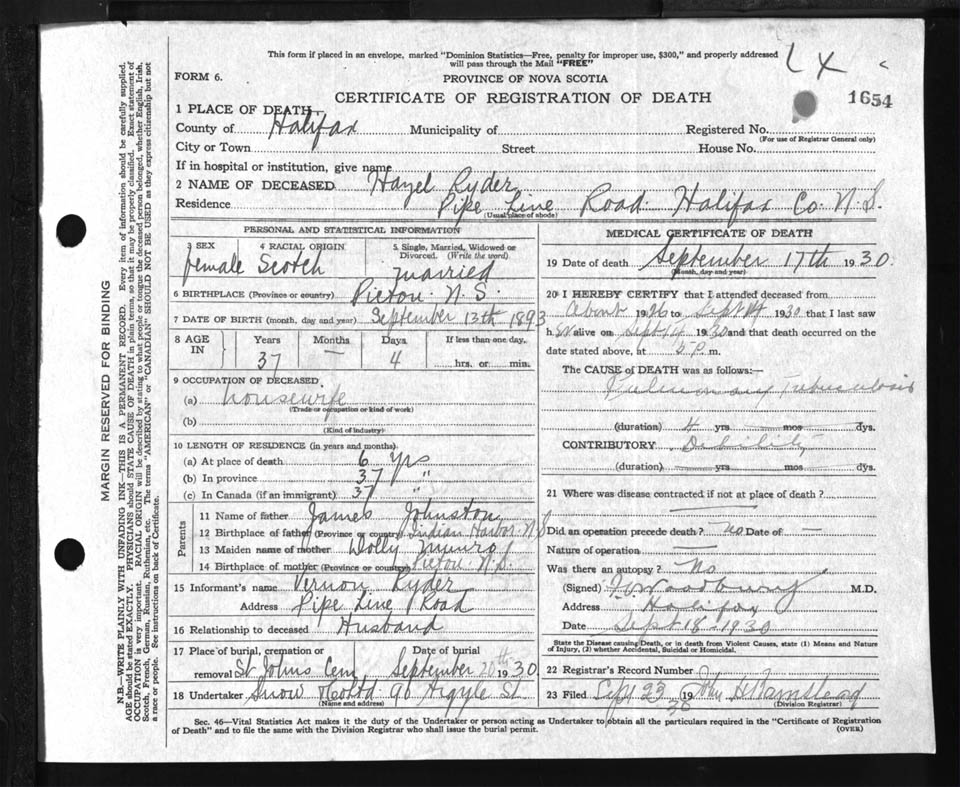 This form if placed in an envelope, marked "Dominion Statistics—Free, penalty for improper use, $300," and properly addressed
will pass through the Mail "FREE"
LX
FORM 6.
PROVINCE OF NOVA SCOTIA
CERTIFICATE OF REGISTRATION OF DEATH
1654
1 PLACE OF DEATH
County of Halifax Municipality of Registered No.
(For use of Registrar General only)
City or Town Street House No.
If in hospital or institution, give name
2 NAME OF DECEASED Hazel Ryder
Residence Pipe Line Road Halifax Co. N.S.
(Usual place of abode)
PERSONAL AND STATISTICAL INFORMATION
3 SEX 4 RACIAL ORIGIN 5 Single, Married, Widowed or
Divorced. (Write the word).
female Scotch married
6 BIRTHPLACE (Province or country) Pictou N.S.
7 DATE OF BIRTH (month, day and year) September 13th 1893
8 AGE IN Years Months Days If less than one day,
37 — 4 hrs. or min.
9 OCCUPATION OF DECEASED
(a) housewife
(Trade or occupation or kind of work)
(b)
(Kind of industry)
10 LENGTH OF RESIDENCE (in years and months).
(a) At place of death 6 yrs
(b) In province 37 "
(c) In Canada (if an immigrant) 37 "
Parents
11 Name of father James Johnston
12 Birthplace of father (Province or country) Indian Harbor N.S
13 Maiden name of mother Dolly Munro
14 Birthplace of mother (Province or country) Pictou N.S.
15 Informant's name Vernon Ryder
Address Pipe Line Road
16 Relationship to deceased Husband
17 Place of burial, cremation or Date of burial
removal St Johns Cem September 20th 1930
18 Undertaker Snow & Co Ltd 90 Argyle St.
(Name and address)
MEDICAL CERTIFICATE OF DEATH
19 Date of death September 17th 1930.
(Month, day and year)
20 I HEREBY CERTIFY that I attended deceased from
About 1926 to Sept 14 1930 that I last saw
h alive on Sept 14 1930 and that death occurred on the
date stated above, at 5 P. m.
The CAUSE of DEATH was as follows:—
Pulmonary Tuberculosis
(duration) 4 yrs mos dys.
CONTRIBUTORY Debility
(duration) yrs mos dys.
21 Where was disease contracted if not at place of death?
Did an operation precede death? no Date of —
Nature of operation —
Was there an autopsy? No
(Signed) Woodbury M.D.
Address Halifax
Date Sept 18-1930
State the Disease causing Death, or in death from Violent Causes, state (1) Means and Nature
of Injury, (2) whether Accidental, Suicidal or Homicidal.
22 Registrar's Record Number
23 Filed Sept 23 1930 John H Wamstead
(Division Registrar)
Sec. 46—Vital Statistics Act makes it the duty of the Undertaker or person acting as Undertaker to obtain all the particulars required in the "Certificate of Registration
of Death" and to file the same with the Division Registrar who shall issue the burial permit.
(OVER)
MARGIN RESERVED FOR BINDING
N.B.—WRITE PLAINLY WITH UNFADING INK—THIS IS A PERMANENT RECORD. Every item of information should be carefully supplied.
AGE should be stated EXACTLY. PHYSICIANS should STATE CAUSE OF DEATH in plain terms, so that it may be properly classified. Exact statement of
OCCUPATION is very important. RACIAL ORIGIN will be described by stating to what people or tongue the deceased person belonged, whether English, Irish,
Scotch, French, German, Russian, Ruthenian, etc. The terms "AMERICAN" or "CANADIAN" SHOULD NOT BE USED as they express citizenship but not
a race or people. See instructions on back of Certificate.